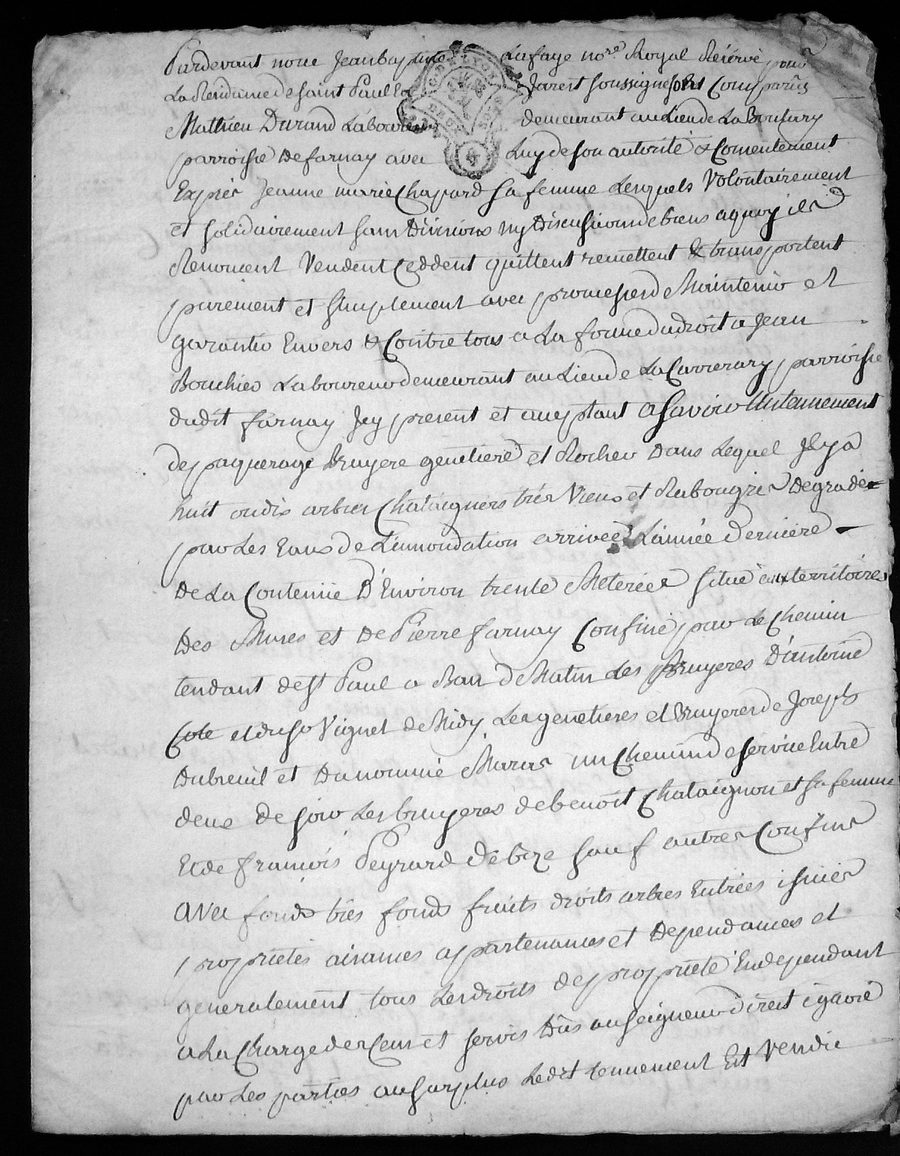 Pardevant nous Jean baptiste Lafaye no.re Royal Réservé pour
La Rendame de saint Paul En Jarest soussigné sont Comparûs
Mathieu Durand Laboureur demeurant au Lieu de La Boutary
parroisse De farnay avec Luy de son autorité & Consentement
Exprès Jeanne marie Chapard sa femme Lesquels Volontairement
et solidairement sans Divisions ny Discussion de biens a quoy ils
Renoncent Vendent Ceddent quittent remettent & transportent
purement et simplement avec promesse de Maintenir et
garantir Envers & Contre tous a La forme du droit a Jean
Bouchier Laboureur demeurant au Lieu de La Carrerary parroisse
dudit farnay Icy present et aceptant a savoir Un tennement
de paquerage Bruyere genetiere et Rocher Dans Lequel Il y a
huit ou dix arbres Chataigners très Vieux et Rabougris Degradés
par Les Eaux de L'innondation arrivée L'année Derniere
De La Contenüe D'Environ trente Meterées situé aux territoires
Des Mures et De Pierre farnay Confiné par Le Chemin
tendant de st Paul a Ban De Matin Les Bruyeres D'antoine
Cote et du sr Vignet de Midy Les genetieres et Bruyeres de Joseph
Dubreuil et Du nommé Maras un Chemin de service Entre
deux De soir Les bruyeres de benoit Chataignon et sa femme
Et de françois Peyrard De bize sauf autres Confins
avec fonds très fonds fruits droits arbres Entrées issües
proprietés aisances appartenances et Dependances et
generalement tous Les droits de proprieté En dependant
a La Charge des Cens et servis Dûs au seigneur direct ignoré
par Les parties au surplus Ledit tennement Est Vendu